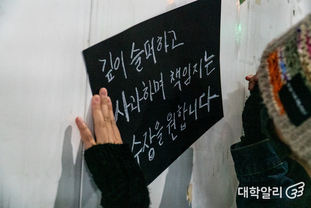 깊이 슬퍼하고
사과하며 책임지는
수장을 원합니다
대학알리